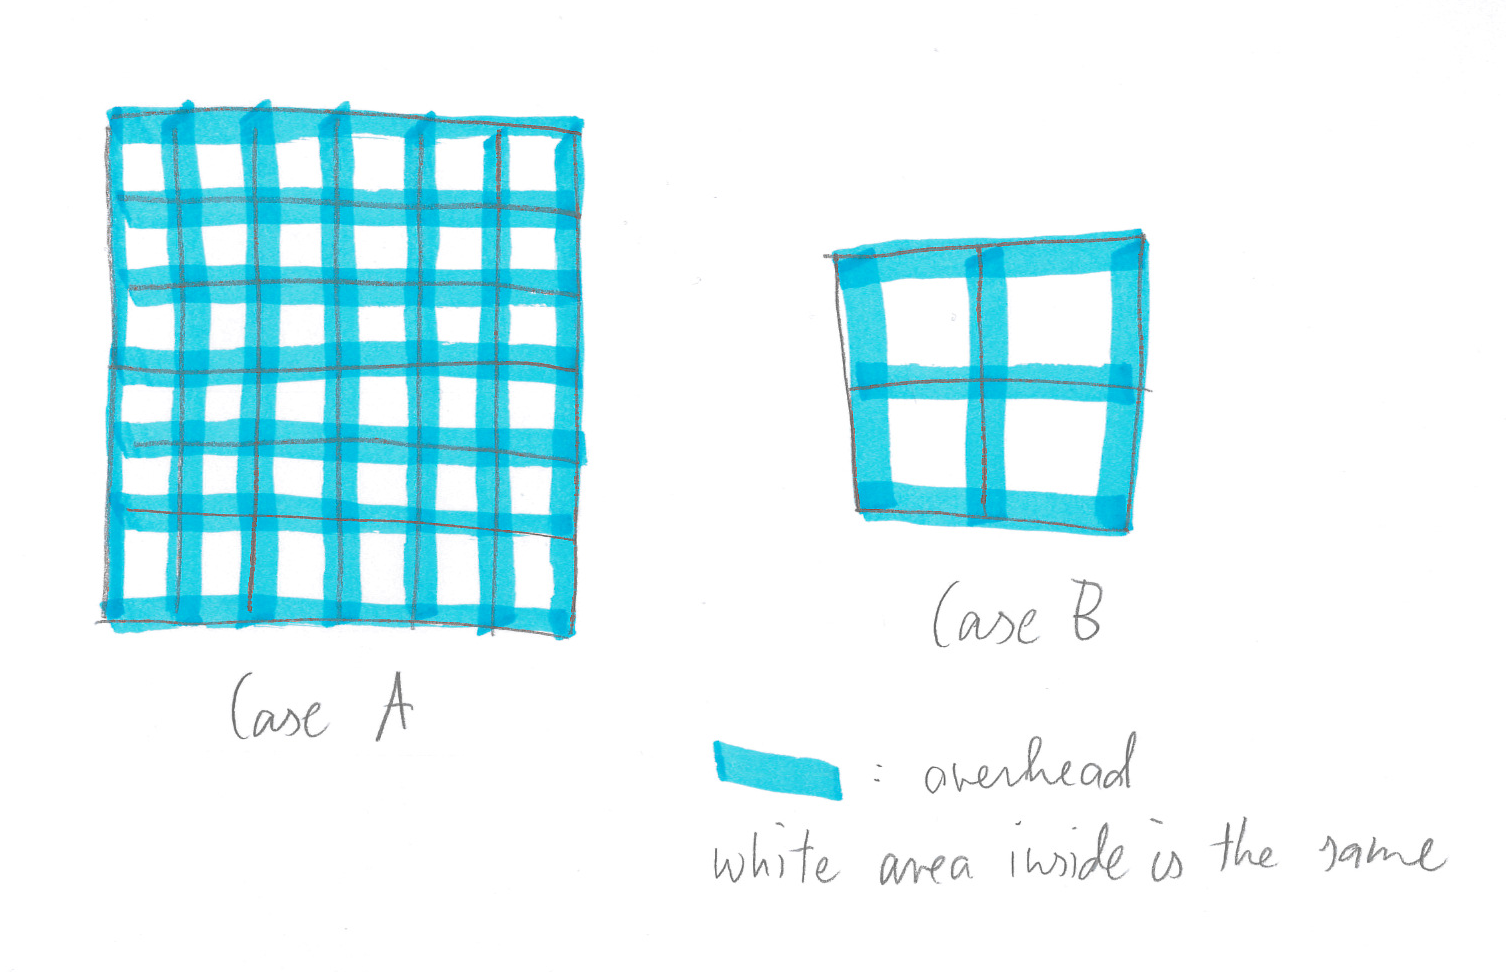 Case A
Case B
: overhead
white area inside is the same